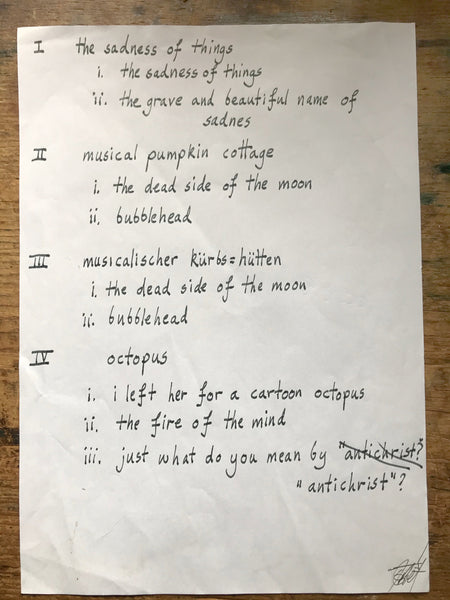 I the sadness of things
i. the sadness of things
ii. the grave and beautiful name of
sadnes
II musical pumpkin cottage
i. the dead side of the moon
ii. bubblehead
III musicalischer kürbs=hütten
i. the dead side of the moon
ii. bubblehead
IV octopus
i. i left her for a cartoon octopus
ii. the fire of the mind
iii. just what do you mean by "antichrist?
"antichrist"?